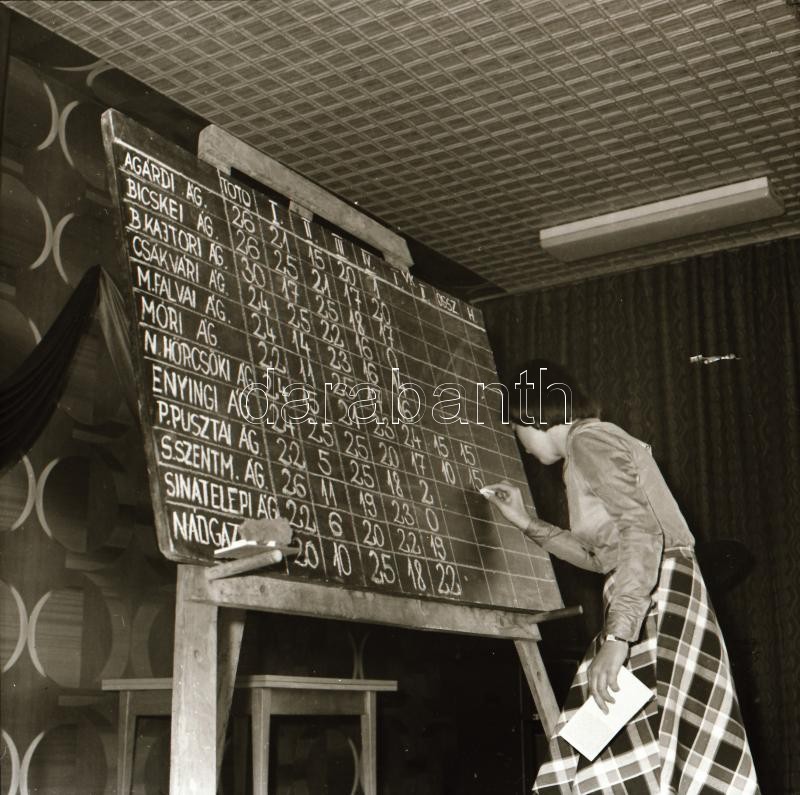 TOTO I II III IV V VI ÖSSZ H
AGÁRDI ÁG. 26 21 15 20 1
BICSKEI ÁG. 26 25 21 17 17
B.KAJTORI ÁG. 30 17 25 18 0
CSÁKVÁRI ÁG. 24 25 22 16
M.FALVAI ÁG. 24 14 23 16
MÓRI ÁG 22 11
N.HÖRCSÖKI ÁG
ENYINGI ÁG 25 25 23 24 15 15
P.PUSZTAI ÁG. 22 5 25 20 17 10 15
S.SZENTM. ÁG. 26 11 25 18 2
SINATELEPI ÁG 22 6 19 23 0
NÁDGAZ 20 10 20 22 19
25 18 22
darabanth